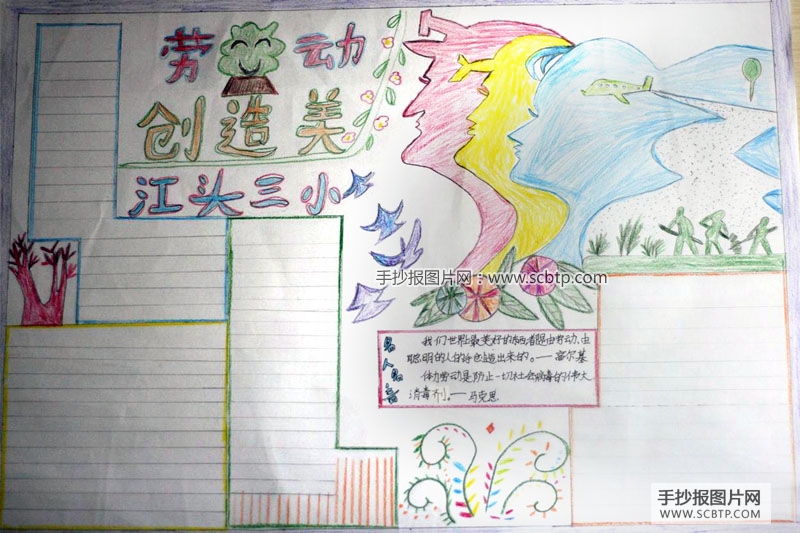 劳动
创造美
江头三小
手抄报图片网：www.scbtp.com
名人名言
我们世界上最美好的东西都是由劳动、由
聪明的人的手创造出来的。——高尔基
体力劳动是防止一切社会病毒的伟大
消毒剂。——马克思
手抄报图片网
WWW.SCBTP.COM